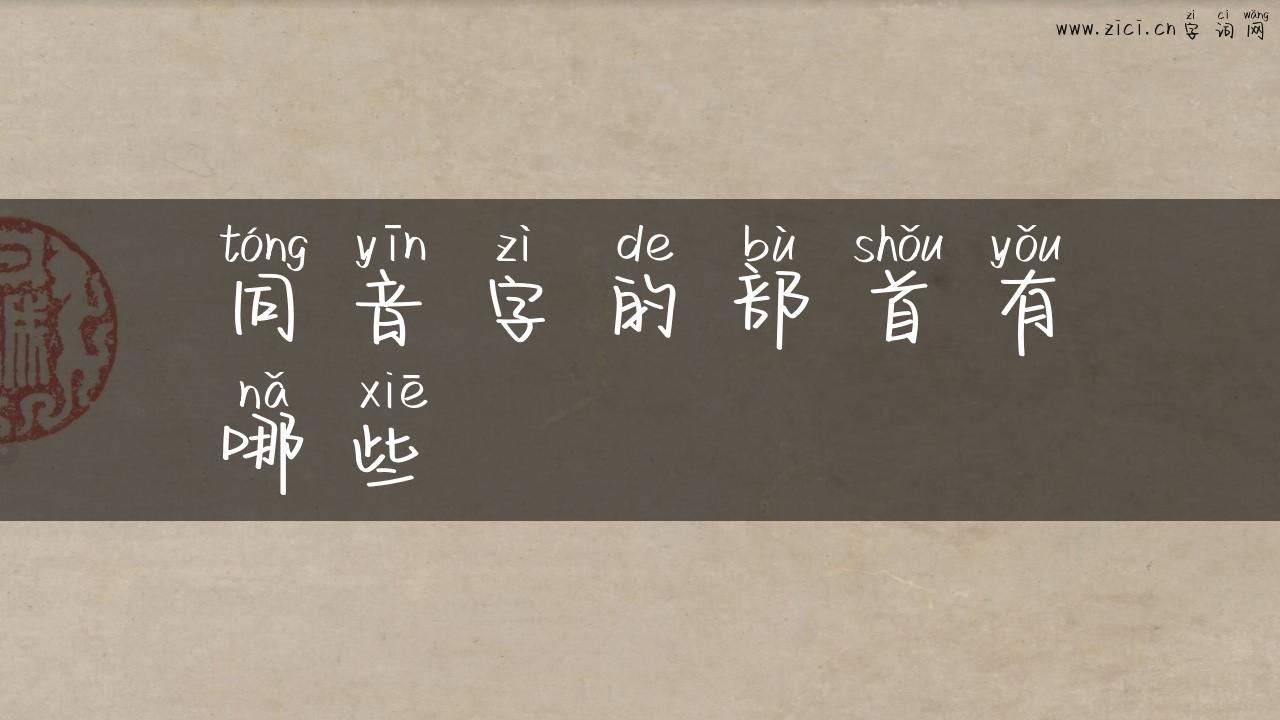 zì cí wǎng
www.zici.cn 字词网
tóng yīn zì de bù shǒu yǒu
同音字的部首有
nǎ xiē
哪些